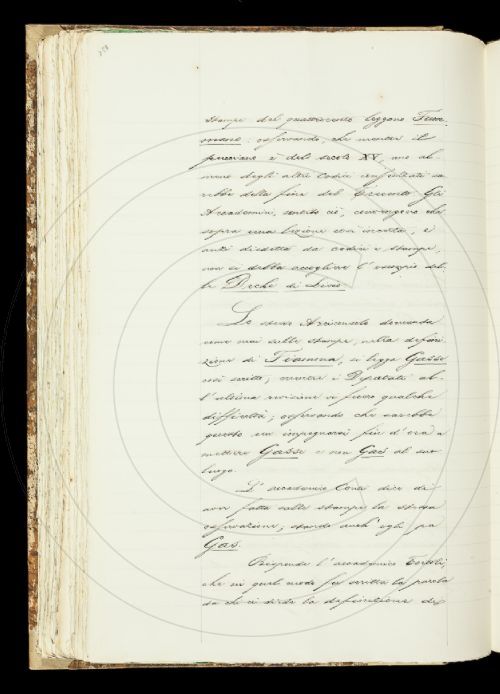 stampe del quattrocento leggono Fum-
mone: osservando che mentre il
è del secolo XV, uno al-
meno degli altri codici consultati sa-
rebbe della fine del Trecento. Gli
Accademici, sentito ciò, convengono che
sopra una lezione così incerta, e
anzi disdetta da codici e stampe,
non si debba accogliere l' esempio del-
le Deche di Livio.
Lo stesso Arciconsolo domanda
come mai sulle stampe, nella defini-
zione di si legge Gasse
così scritto, mentre i Deputati al-
l' ultima revisione vi fecero qualche
difficoltà; osservando che sarebbe
questo un impegnarsi fin d' ora a
mettere Gasse e non Gas al suo
luogo.
L' accademico Conti dice di
aver fatta sulle stampe la stessa
osservazione; stando anch' egli per
Gas.
Risponde l' accademico Tortoli,
che in quel modo fu scritta la parola
da chi ci diede la definizione di